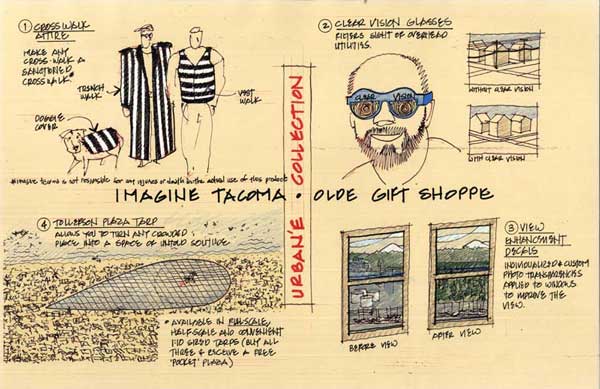 ① CROSSWALK
ATTIRE
MAKE ANY
CROSS-WALK A
SANCTIONED
CROSSWALK.
TRENCH
WALK
VEST
WALK
DOGGIE
COVER
IMAGINE TACOMA IS NOT RESPONSIBLE FOR ANY INJURIES OR DEATH IN THE ACTUAL USE OF THIS PRODUCT
② CLEAR VISION GLASSES
FILTERS SIGHT OF OVERHEAD
UTILITIES.
CLEAR VISION
WITHOUT CLEAR VISION
WITH CLEAR VISION
URBAN'E COLLECTION
IMAGINE TACOMA • OLDE GIFT SHOPPE
④ TOLLEFSON PLAZA TARP
ALLOWS YOU TO TURN ANY CROWDED
PLACE INTO A SPACE OF UNTOLD SOLITUDE.
• AVAILABLE IN FULLSCALE,
HALFSCALE AND CONVENIENT
1:10 SIZED TARPS (BUY ALL
THREE & RECEIVE A FREE
'POCKET' PLAZA)
③ VIEW
ENHANCEMENT
DECALS
INDIVIDUALIZED & CUSTOM
PHOTO TRANSPARENCIES
APPLIED TO WINDOWS
TO IMPROVE THE
VIEW.
BEFORE VIEW
AFTER VIEW